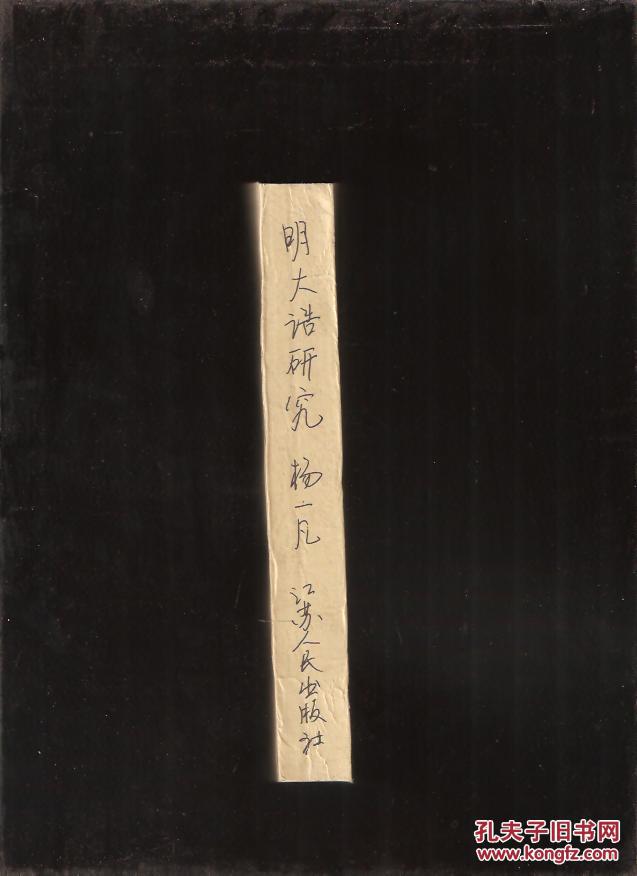 明大诰研究 杨一凡 江苏人民出版社
孔夫子旧书网
www.kongfz.com